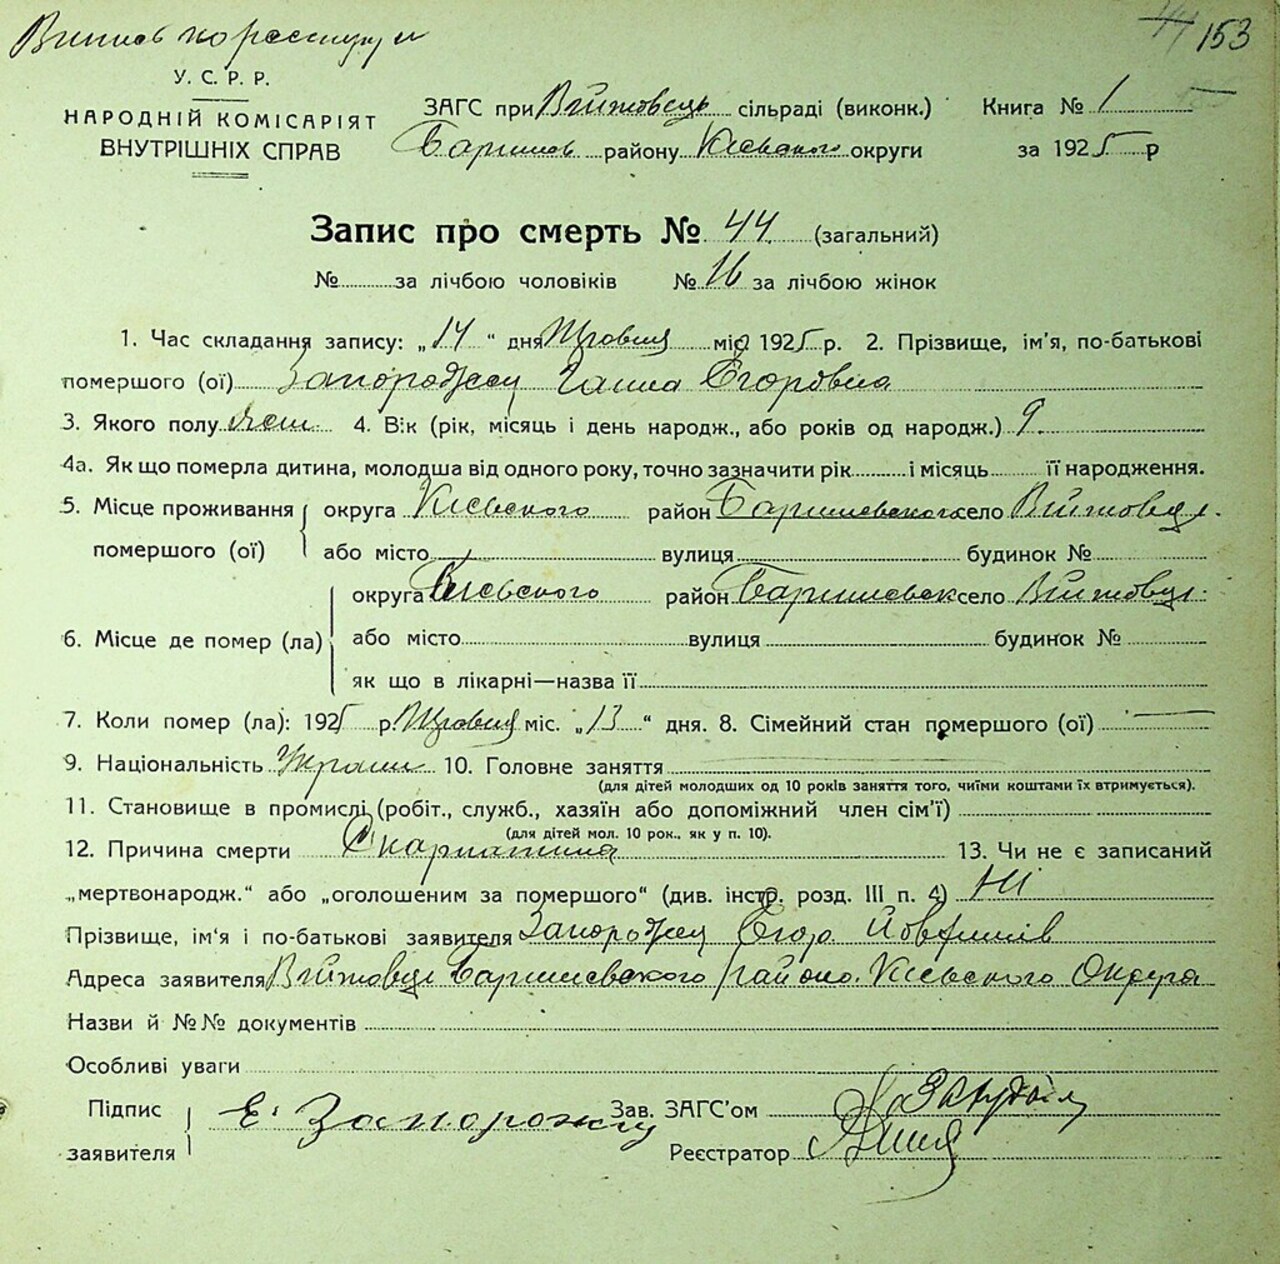 153
У. С. Р. Р.
НАРОДНІЙ КОМІСАРІЯТ
ВНУТРІШНІХ СПРАВ
ЗАГС при Війтовець сільраді (виконк.) Книга № 1
Баришев району Києвского округи за 1925 р
Запис про смерть № 44 (загальний)
№ за лічбою чоловіків № 16 за лічбою жінок
1. Час складання запису: „14“ дня Жовтня міс 1925 р. 2. Прізвище, ім'я, по-батькові
помершого (ої) Запорожец Ганна Єгоровна
3. Якого полу жін. 4. Вік (рік, місяць і день народж., або років од народж.) 9.
4а. Як що померла дитина, молодша від одного року, точно зазначити рік і місяць її народження.
5. Місце проживання помершого (ої) округа Києвского район Баришевского село Війтовці.
або місто вулиця будинок №
6. Місце де помер (ла) округа Києвского район Баришевск село Війтовці.
або місто вулиця будинок №
як що в лікарні—назва її
7. Коли помер (ла): 1925 р. Жовтня міс. „13“ дня. 8. Сімейний стан помершого (ої) —
9. Національність Украин 10. Головне заняття
(для дітей молодших од 10 років заняття того, чиїми коштами їх втримується).
11. Становище в промислі (робіт., служб., хазяїн або допоміжний член сім'ї)
(для дітей мол. 10 рок., як у п. 10).
12. Причина смерти Скарлатина 13. Чи не є записаний
„мертвонародж.“ або „оголошеним за помершого“ (див. інстр. розд. III п. 4) Ні
Прізвище, ім'я і по-батькові заявителя Запорожец Єгор
Адреса заявителя Війтовці Баришевского району Києвского Округа
Назви й №№ документів
Особливі уваги
Підпис заявителя Е. Запорожец Зав. ЗАГС'ом
Реєстратор